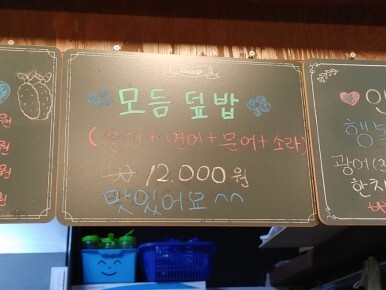 원
원
원
원
모듬 덮밥
(광어+연어+문어+소라)
12.000원
맛있어요^^
광어(
한치